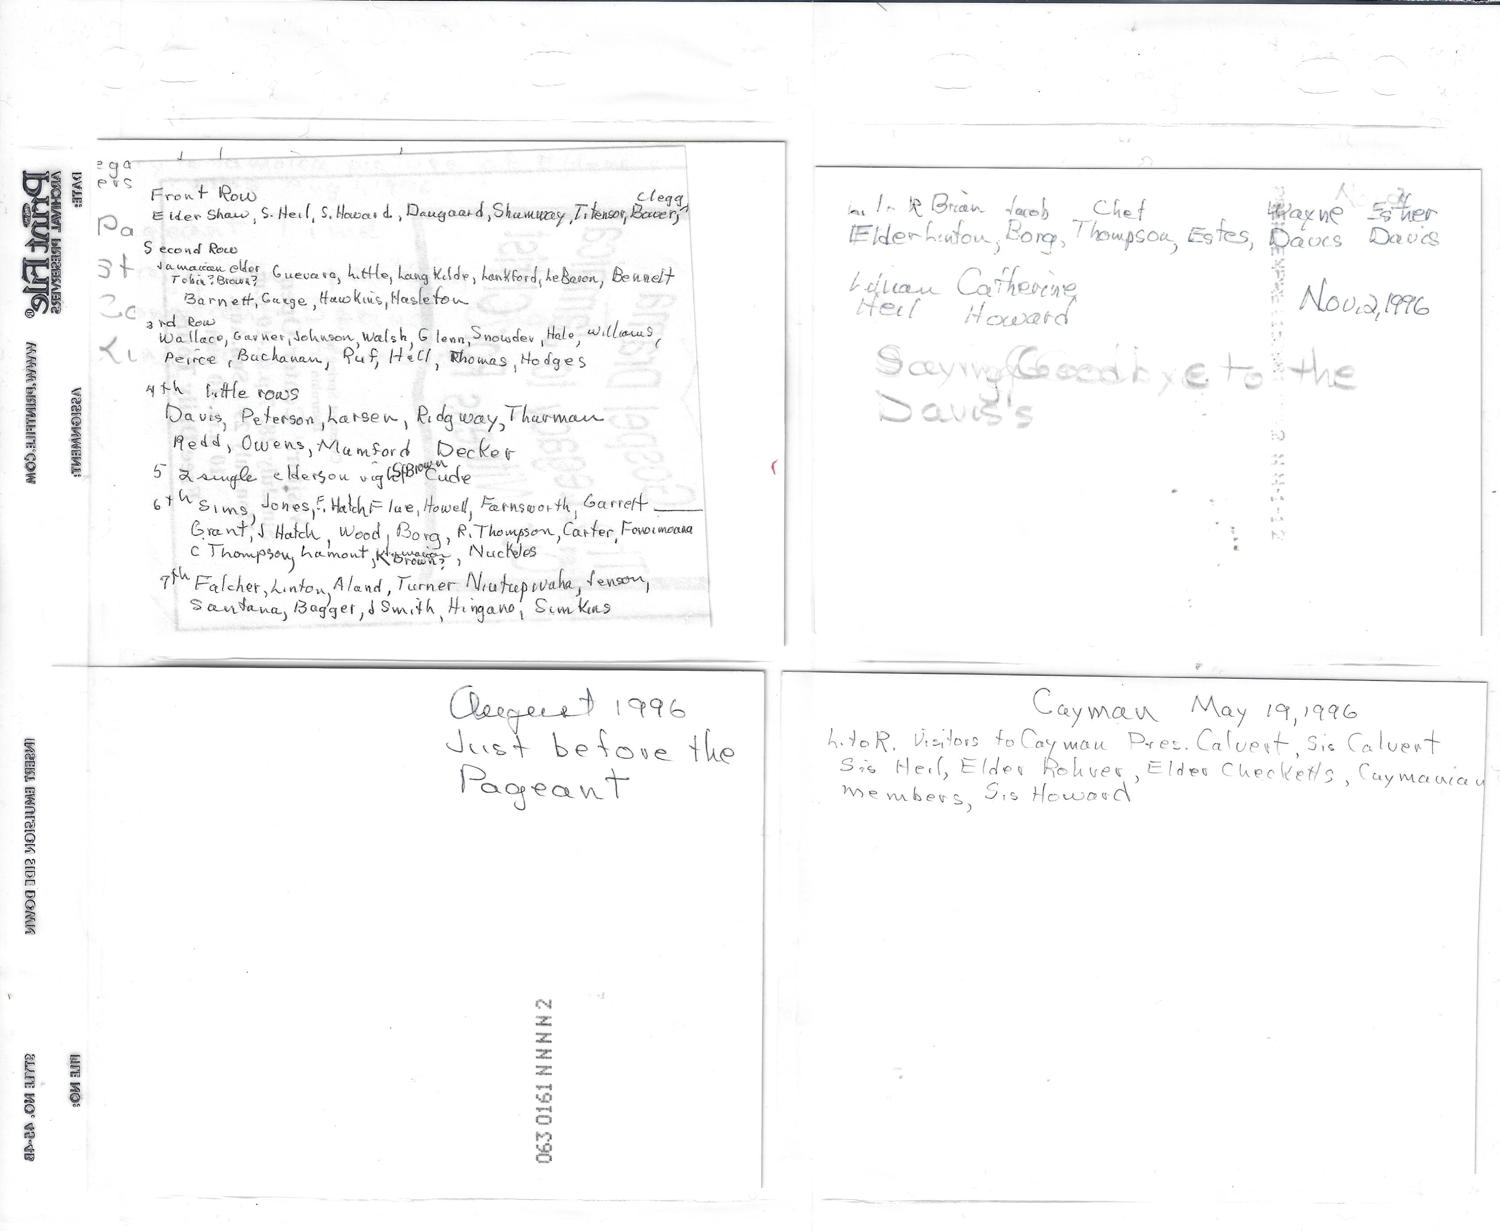 Front Row
Clegg
Elder Shaw, S. Heil, S. Howard, Daugaard, Shumway, Titensor, Bauer,
Second Row
Jamaican elder Guevara, Little, LangKilde, Lankford, LeBaron, Bennett
Tobin? Brown?
Barnett, Gange, Hawkins, Hasleton
3rd Row
Wallace, Garner, Johnson, Walsh, Glenn, Snowder, Hale, Williams,
Peirce, Buchanan, Ruf, Hill, Thomas, Hodges
4th little rows
Davis, Peterson, Larsen, Ridgway, Thurman
Redd, Owens, Mumford Decker
5 2 single elders on right S Brown Cude
6th Sims, Jones, E. Hatch Flue, Howell, Farnsworth, Garrett
Grant, J Hatch, Wood, Borg, R. Thompson, Carter, Fonoimoana
C Thompson, Lamont, Brown?, Nuckles
7th Falcher, Linton, Aland, Turner Jenson,
Santana, Bagger, J Smith, Hingano, Simkins
ega
ers
Pa
St
L to R Brian Jacob Chet Wayne Esther
Elder Linton, Borg, Thompson, Estes, Davis Davis
Lillian Catherine
Heil Howard
Nov. 2, 1996
Saying Goodbye to the
Davis's
August 1996
Just before the
Pageant
063 0161 NNNNN 2
Cayman May 19, 1996
L. to R. Visitors to Cayman Pres. Calvert, Sis Calvert
Sis Heil, Elder Rohrer, Elder Checketts, Caymanian
members, Sis Howard
DATE:
ARCHIVAL PRESERVERS
Print File®
WWW.PRINTFILE.COM
ASSIGNMENT:
INSERT EMULSION SIDE DOWN
STYLE NO. 45-4B
FILE NO: